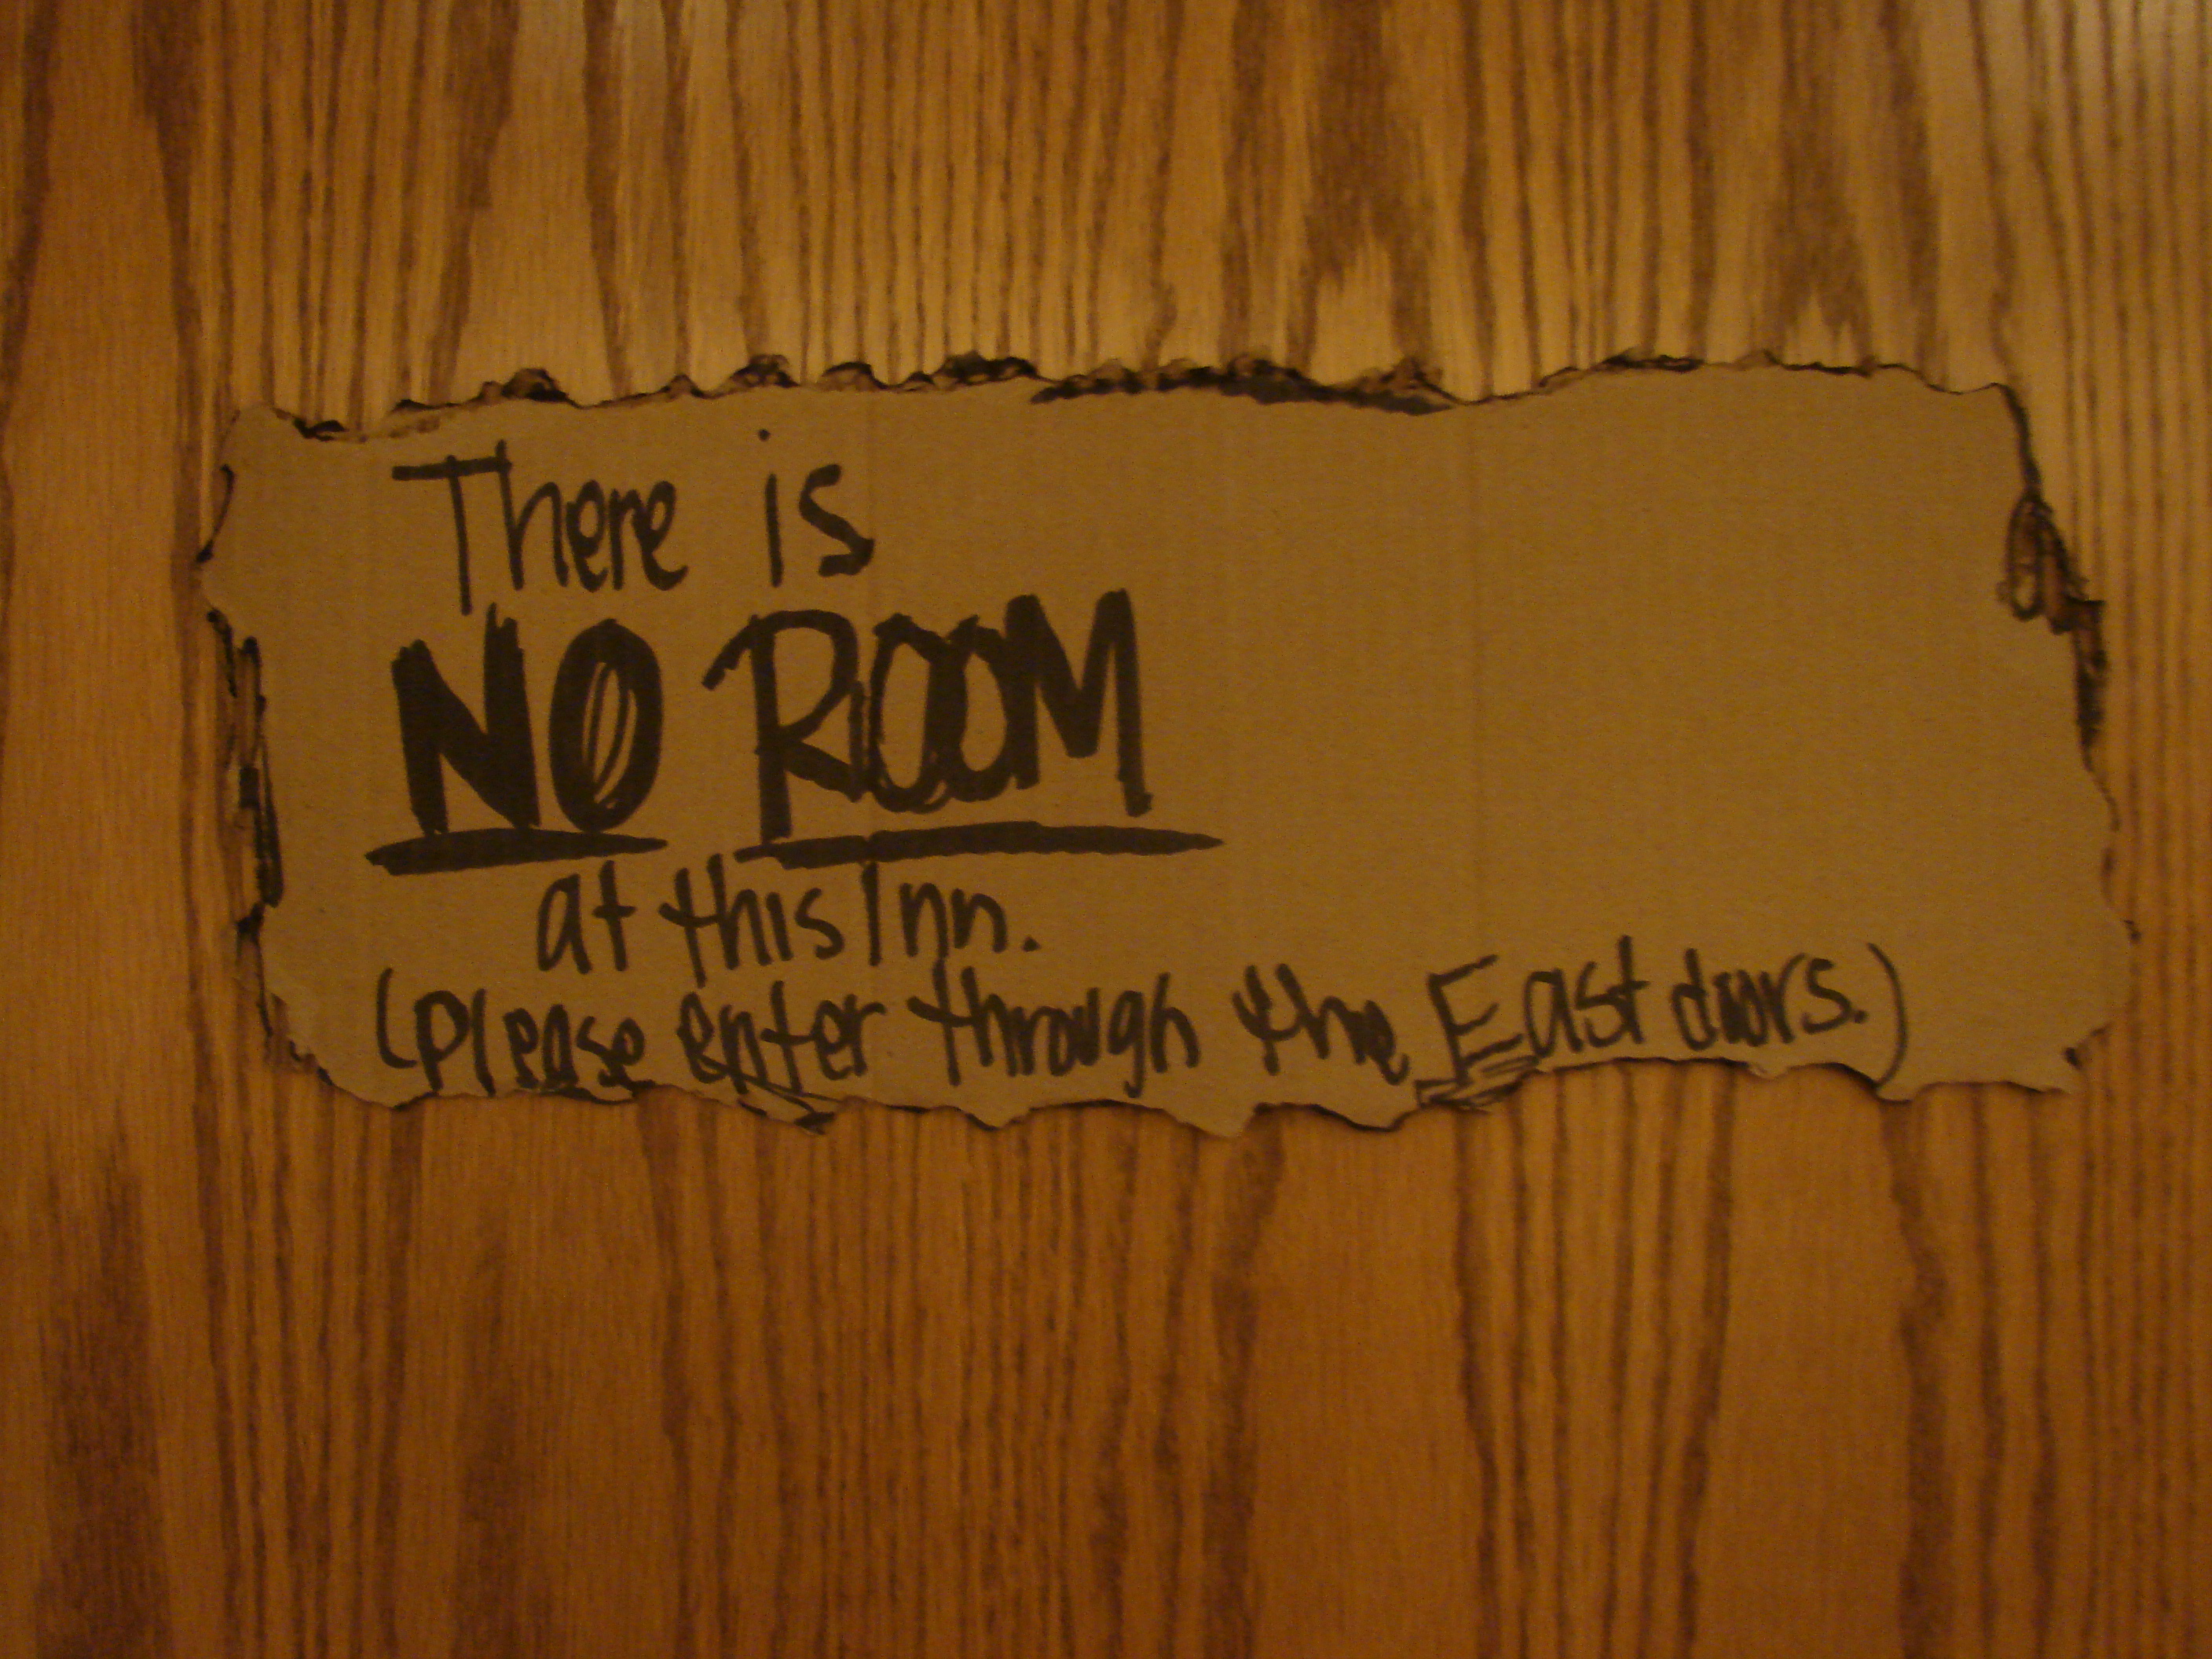 There is
NO ROOM
at this Inn.
(please enter through the East doors.)